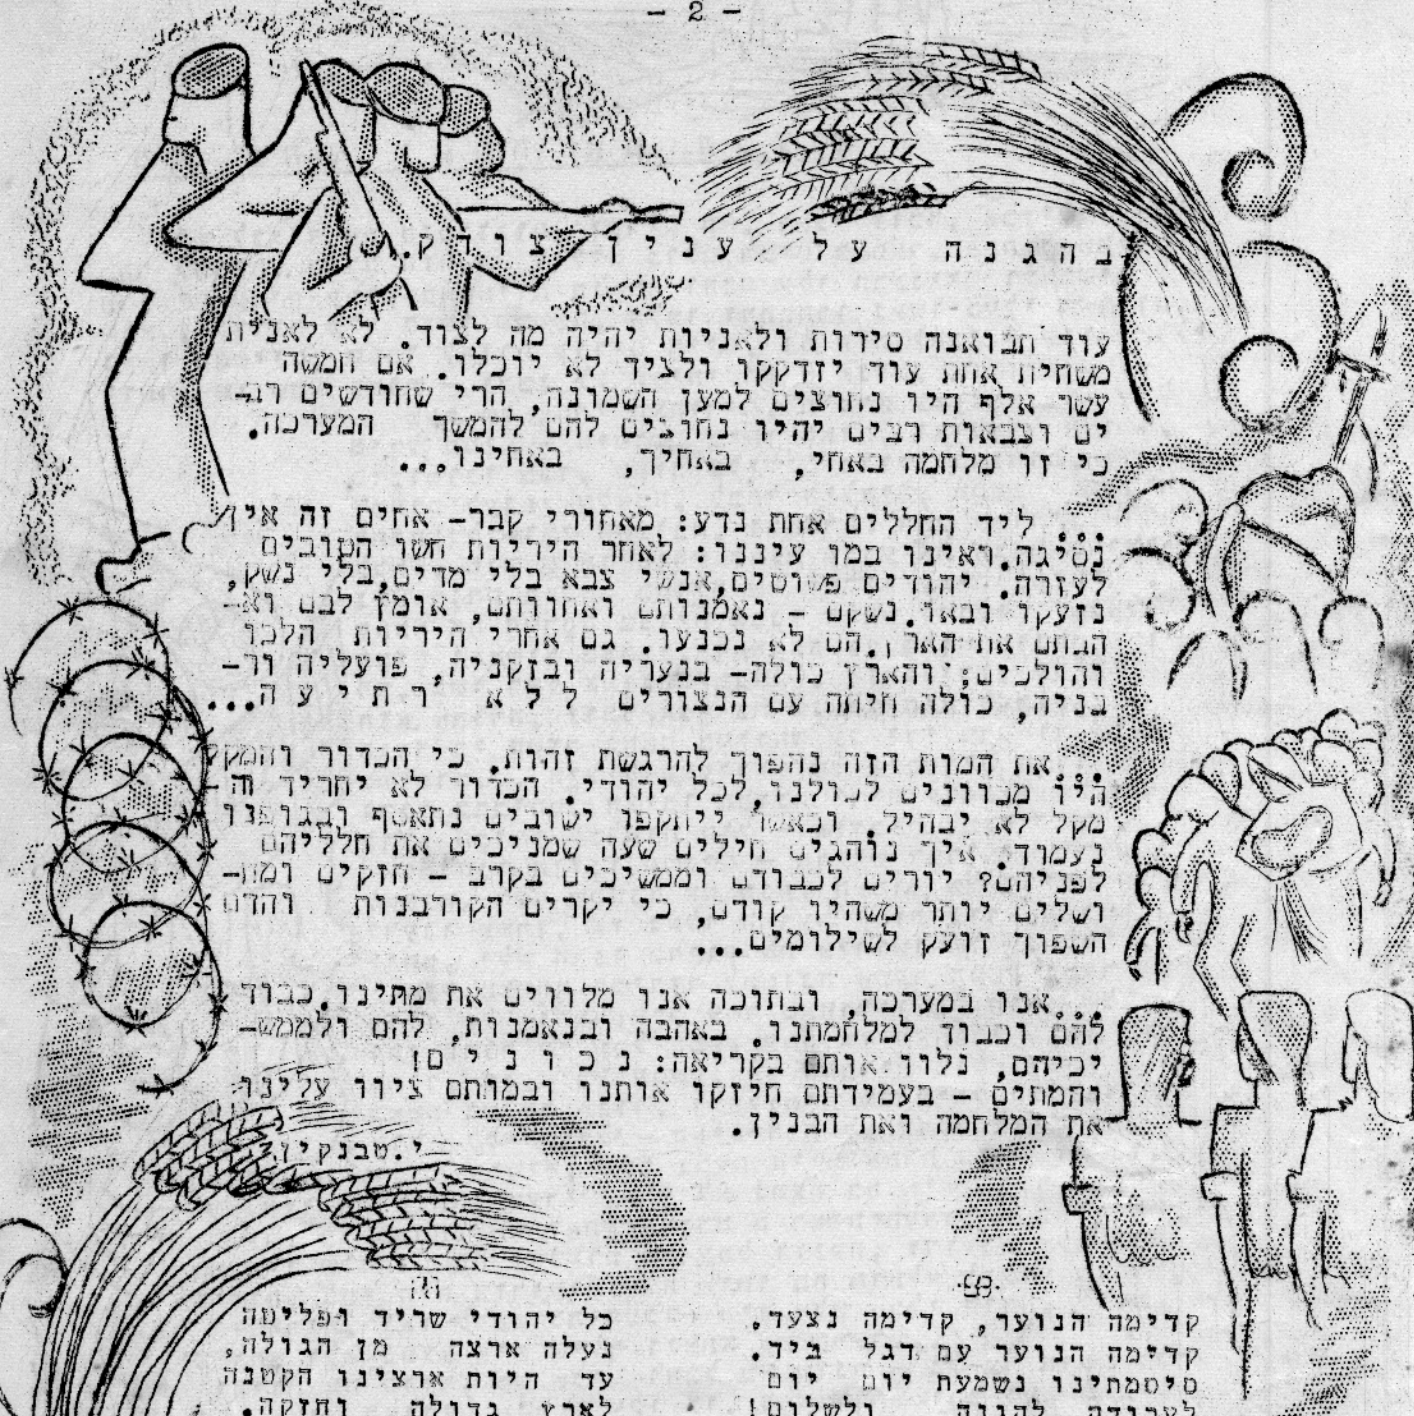 - 2 -
בהגנה על ענין צודק.
עוד תבואנה סירות ולאניות יהיה מה לצוד. לא לאנית
משחית אחת עוד יזדקקו ולציד לא יוכלו. אם חמשה
עשר אלף היו נחוצים למען השמונה, הרי שחודשים רב-
ים וצבאות רבים יהיו נחוצים להם להמשך המערכה.
כי זו מלחמה באחי, באחיך, באחינו...
... ליד החללים אחת נדע: מאחורי קבר- אחים זה אין
נסיגה.ראינו במו עיננו: לאחר היריות חשו הטובים
לעזרה. יהודים פשוטים,אנשי צבא בלי מדים,בלי נשק,
נזעקו ובאו.נשקם - נאמנותם ואחוותם, אומץ לבם וא-
הבתם את הארץ.הם לא נכנעו. גם אחרי היריות הלכו
והולכים; והארץ כולה- בנעריה ובזקניה, פועליה ור-
בניה, כולה חיתה עם הנצורים ללא רתיעה...
...את המות הזה נהפוך להרגשת זהות. כי הכדור והמקל
היו מכוונים לכולנו,לכל יהודי. הכדור לא יחריד וה-
מקל לא יבהיל. וכאשר ייתקפו ישובים נתאסף ובגופנו
נעמוד. איך נוהגים חילים שעה שמניכים את חלליהם
לפניהם? יורים לכבודם וממשיכים בקרב - חזקים ומח-
ושלים יותר משהיו קודם, כי יקרים הקורבנות והדם
השפוך זועק לשילומים...
...אנו במערכה, ובתוכה אנו מלווים את מתינו.כבוד
להם וכבוד למלחמתנו. באהבה ובנאמנות, להם ולממש-
יכיהם, נלוו אותם בקריאה: נכונים!
והמתים - בעמידתם חיזקו אותנו ובמותם ציוו עלינו
את המלחמה ואת הבנין.
י.טבנקין
קדימה הנוער, קדימה נצעד.
קדימה הנוער עם דגל ביד.
סיסמתינו נשמעת יום יום
לעבודה להגנה ולשלום!
כל יהודי שריד ופליטה
נעלה ארצה מן הגולה,
עד היות ארצינו הקטנה
לארץ גדולה וחזקה.